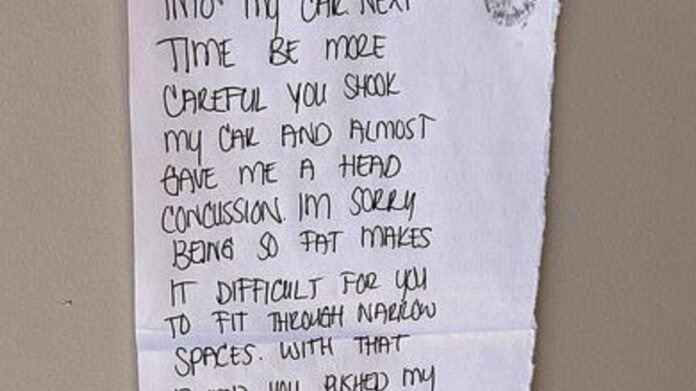 INTO MY CAR NEXT
TIME BE MORE
CAREFUL YOU SHOOK
MY CAR AND ALMOST
GAVE ME A HEAD
CONCUSSION. IM SORRY
BEING SO FAT MAKES
IT DIFFICULT FOR YOU
TO FIT THROUGH NARROW
SPACES. WITH THAT
YOU PUSHED MY